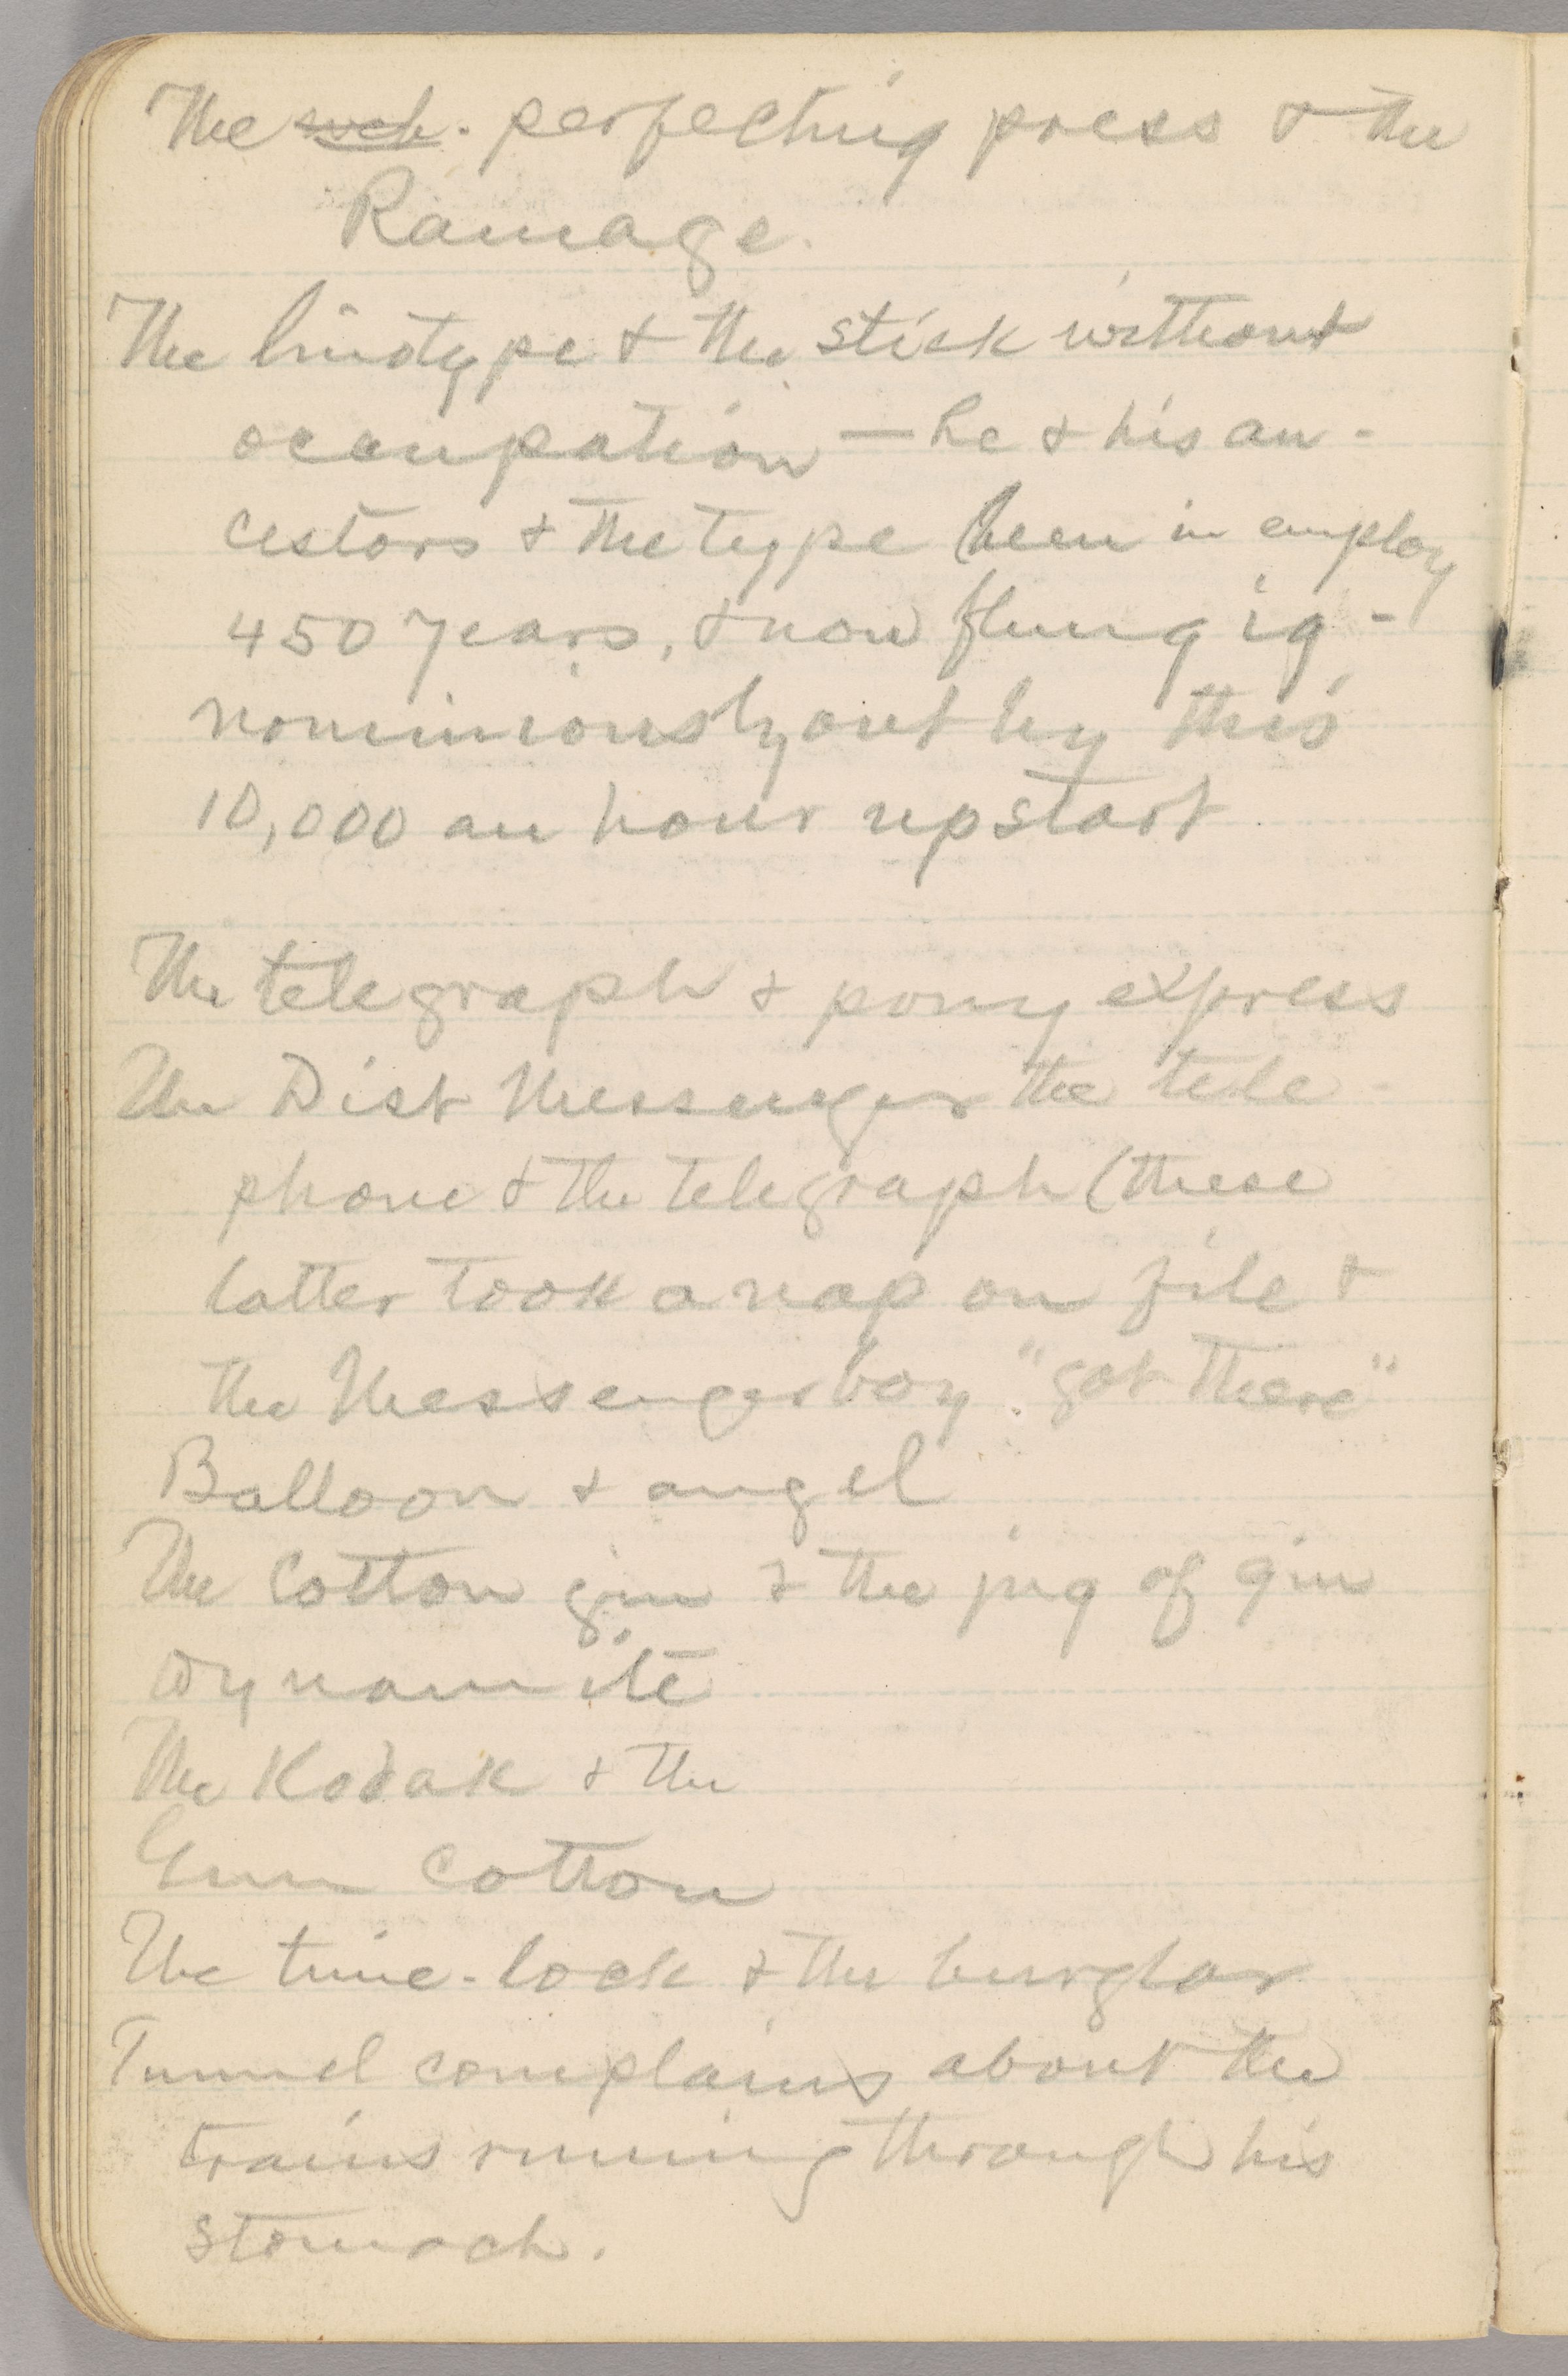 The sech. perfecting press & the
Ramage.
The linotype & the stick without
occupation — he & his an-
cestors & the type been in employ
450 years, & now flung ig-
nominiously out by this
10,000 an hour upstart
The telegraph & pony express
The Dist Messenger the tele-
phone & the telegraph (these
latter took a nap on file &
the Messenger boy "got there"
Balloon & angel
The cotton gin & the jug of gin
Dynamite
The Kodak & the
Gun cotton
The time-lock & the burglar
Tunnel complains about the
trains running through his
stomach.